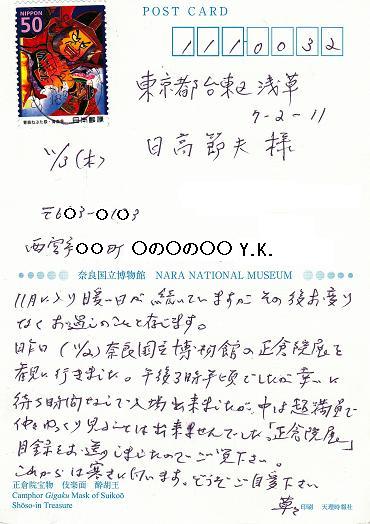 POST CARD
111-0032
NIPPON
50
日本郵便
東京都台東区浅草
7-2-11
日高節夫様
11/3(木)
〒603-0103
西宮市〇〇町 〇の〇の〇〇 Y.K.
奈良国立博物館 NARA NATIONAL MUSEUM
11月に入り暖い日が続いていますがその後お変り
なくお過しのことと存じます。
昨日(11/2)奈良国立博物館の正倉院展を
観に行きました。午後3時半頃でしたが幸いに
待ち時間なしで入場出来ましたが、中は超満員で
ゆっくり見ることは出来ませんでした。「正倉院展」
目録をお送りしましたのでご覧下さい。
これからは寒さに向います。どうぞご自愛下さい。
草々
正倉院宝物 伎楽面 酔胡王
Camphor Gigaku Mask of Suikoō
Shōso-in Treasure
印刷 天理時報社